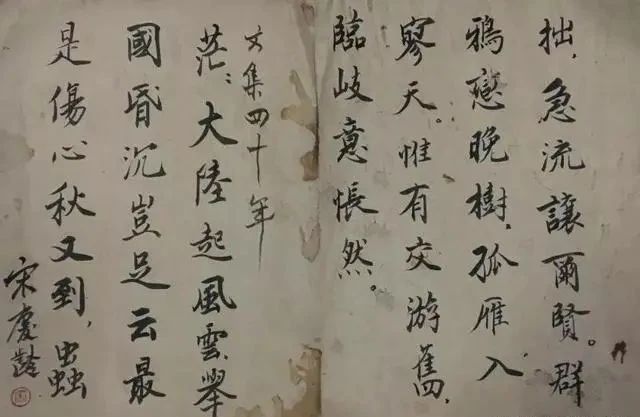 拙，急流讓爾賢。群
鴉戀晚樹，孤雁入
寥天。惟有交游舊，
臨歧意悵然。
文集四十年
茫：大陸起風雲，舉
國昏沉豈足云最
是傷心秋又到，蟲
宋慶齡